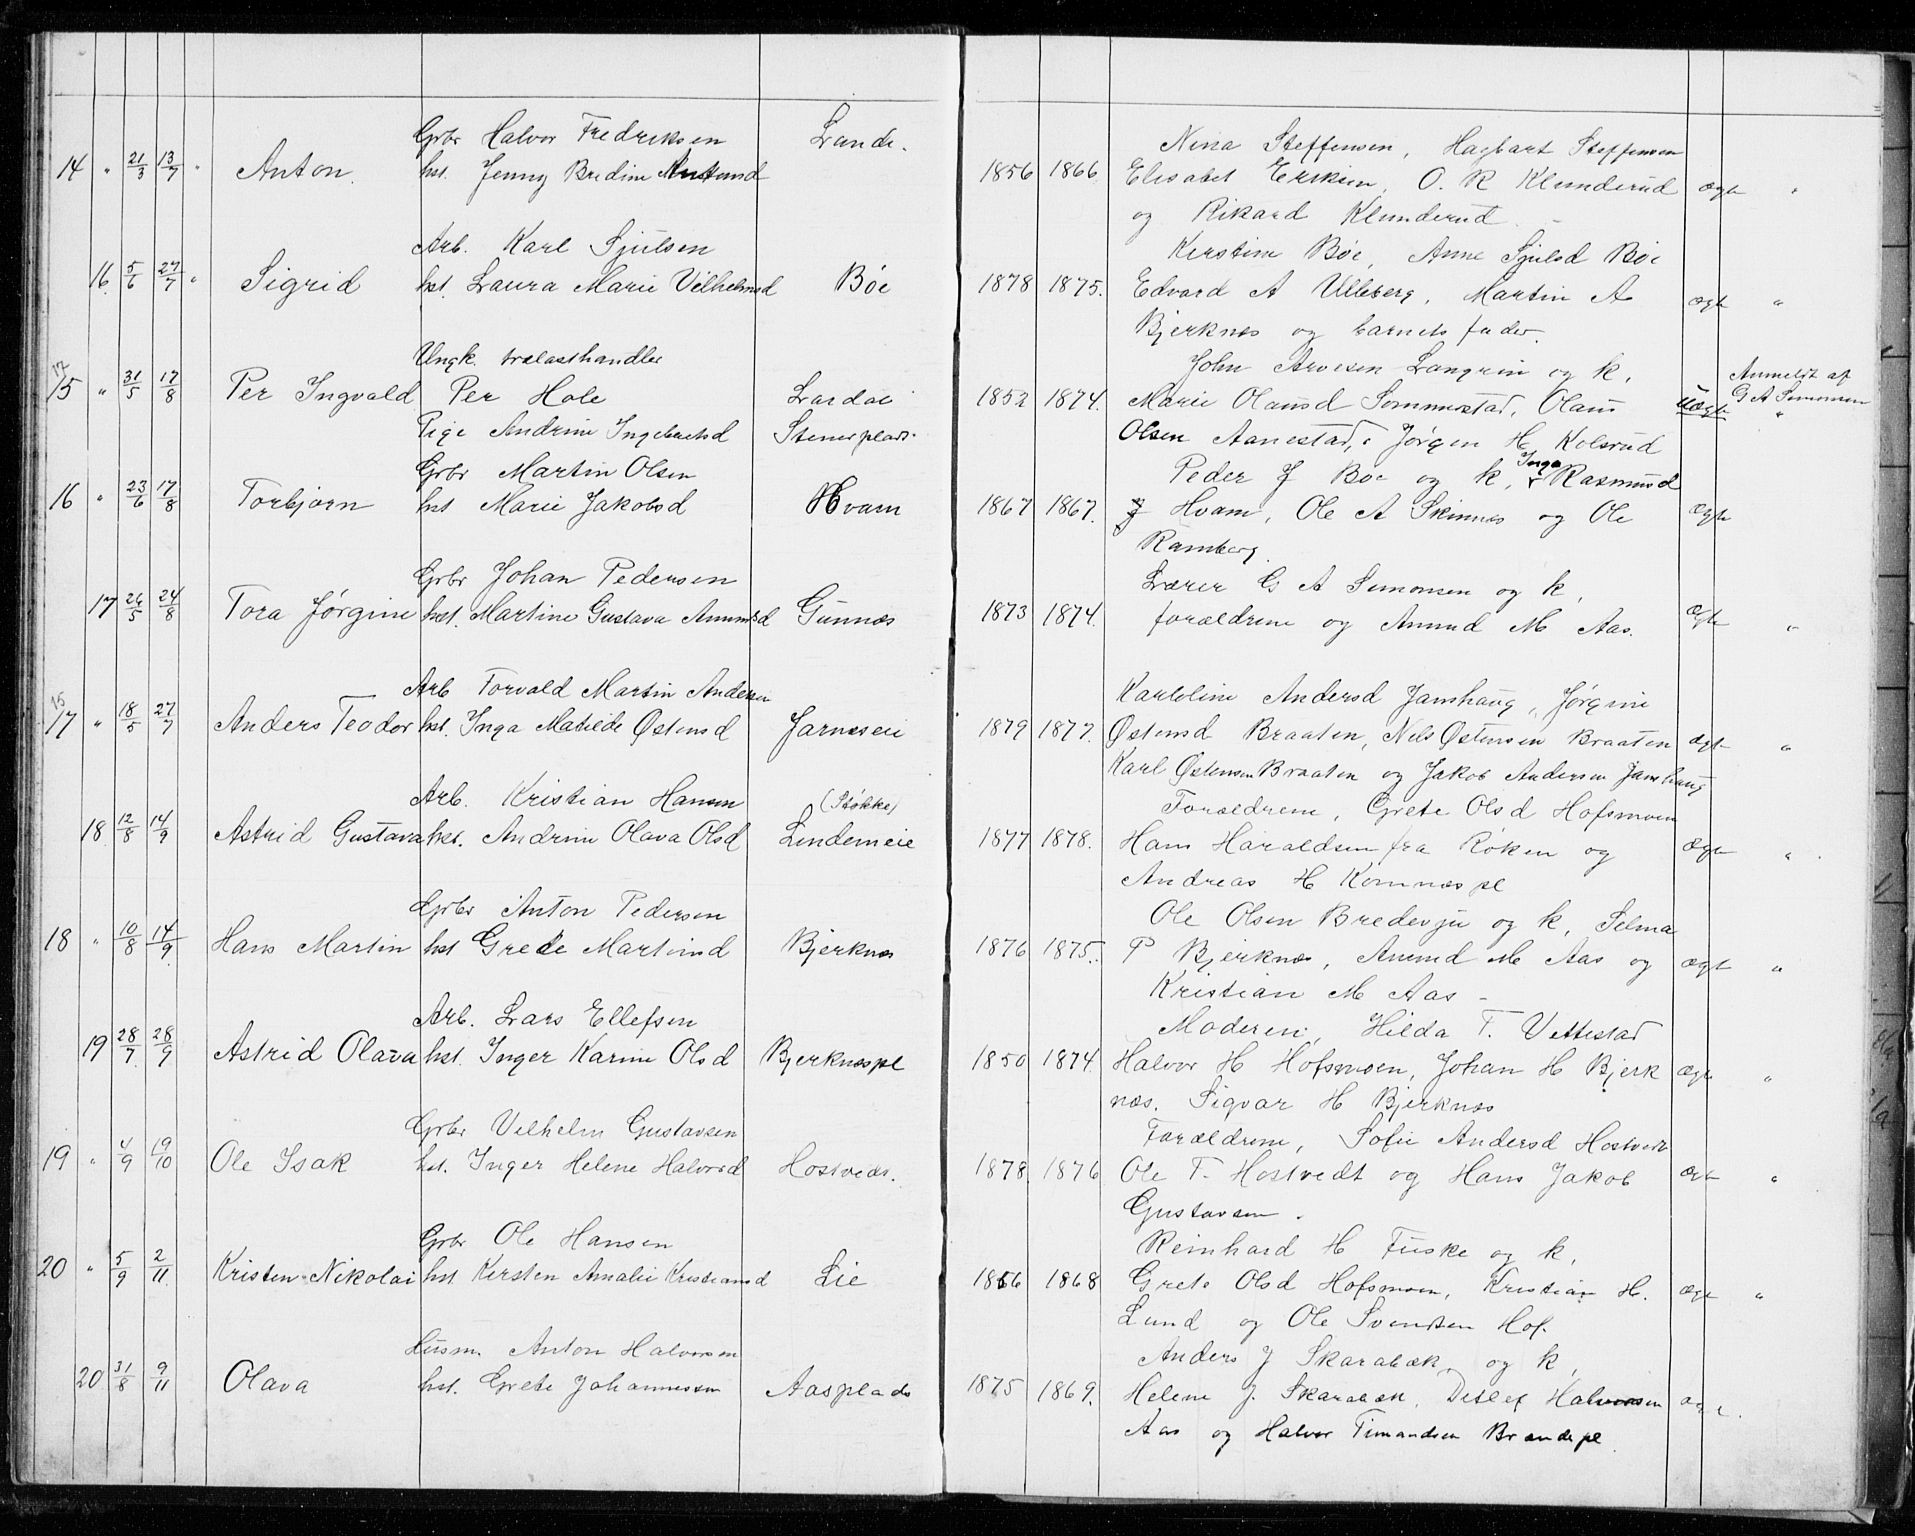 Grbr Halvor Fredriksen Lande.
14 " 21/3 13/7 " Anton. hst. Jenny Bredine
Arb. Karl Sjulsen
16. 5/6 27/7 " Sigrid hst. Laura Marie Vilhelmsd Bøe
Ungk. trælasthandler
15 " 31/5 17/8 Per Ingvald Per Hole Lardal
Pige Andrine Ingebretsd Stenerplads.
Grbr Martin Olsen
16 " 23/6 17/8 Torbjørn hst Marie Jakobsd Hvam
Grbr Johan Pedersen
17 26/5 24/8 Tora Jørgine hst. Martine Gustava Amundsd Gunnæs
Arb Torvald Martin Andersen
15
17 " 18/5 27/7 Anders Teodor hst. Inga Matilde Østensd Jarneseie
Arb. Kristian Hansen (Stokke)
18 12/8 14/9 Astrid Gustava hst. Andrine Olava Olsd Lindemeie
Grbr Anton Pedersen
18 " 10/8 14/9 Hans Martin hst Grete Martinsd Bjerknes
Arb. Lars Ellefsen
19 28/7. 28/9 Astrid Olava hst. Inger Karine Olsd Bjerknespl
Grbr Vilhelm Gustavsen
19 " 4/9 19/10 Ole Isak hst. Inger Helene Halvorsd Hostvedt.
Grbr Ole Hansen
20 " 5/9 2/11 Kristen Nikolai hst Kirsten Amalie Kristiansd Lie
Husm. Anton Halvorsen
20 31/8 9/11 Olava hst. Grete Johannessen Aasplads
Nina Steffensen, Hagbart Steffensen
1856 1866. Elisabet Eriksen, O. R Klunderud ægte "
og Rikard Klunderud.
Kirstine Bøe, Anne Sjulsd Bøe
1878 1875. Edvard A Ulleberg, Martin A ægte "
Bjerknes og barnets fader.
John Arvesen Langrin og k, Anmeldt af
1852 1874. Marie Olausd Sommerstad, Olaus Uægte G A Simonsen "
Olsen Aanestad, Jørgen H. Kolsrud
Peder J Bøe og k, Inga Rasmusd
1867 1867. Hvam, Ole A Skinnes og Ole ægte
Ramberg.
Lærer G A Simonsen og k,
1873 1874. forældrene og Amund M Aas. ægte "
Karoline Andersd Janshaug, Jørgine
1879 1877. Østensd Braaten, Nels Østensen Braaten ægte "
Karl Østensen Braaten og Jakob Andersen Janshaug
Forældrene, Grete Olsd Hofsmoen
1877 1878. Hans Haraldsen fra Røken og ægte "
Andreas H Komnæspl
Ole Olsen Bredevju og k, Selma
1876 1875. P Bjerknes, Amund M Aas og ægte "
Kristian M Aas
Moderen, Hilda T. Vettestad
1850 1874. Halvor H Hofsmoen, Johan H Bjerk ægte "
næs. Sigvar H Bjerknes
Forældrene, Sofie Andersd Hostvedt
1878 1876 Ole T. Hostvedt og Hans Jakob ægte "
Gustavsen.
Reinhard H Fuske og k,
1866 1868 Grete Olsd Hofsmoen, Kristian H. ægte "
Lund og Ole Svendsen Hof.
Anders J Skarabæk og k,
1875 1869. Helene J. Skarabæk, Detlef Halvorsen ægte.
Aas og Halvor Timandsen Brandepl